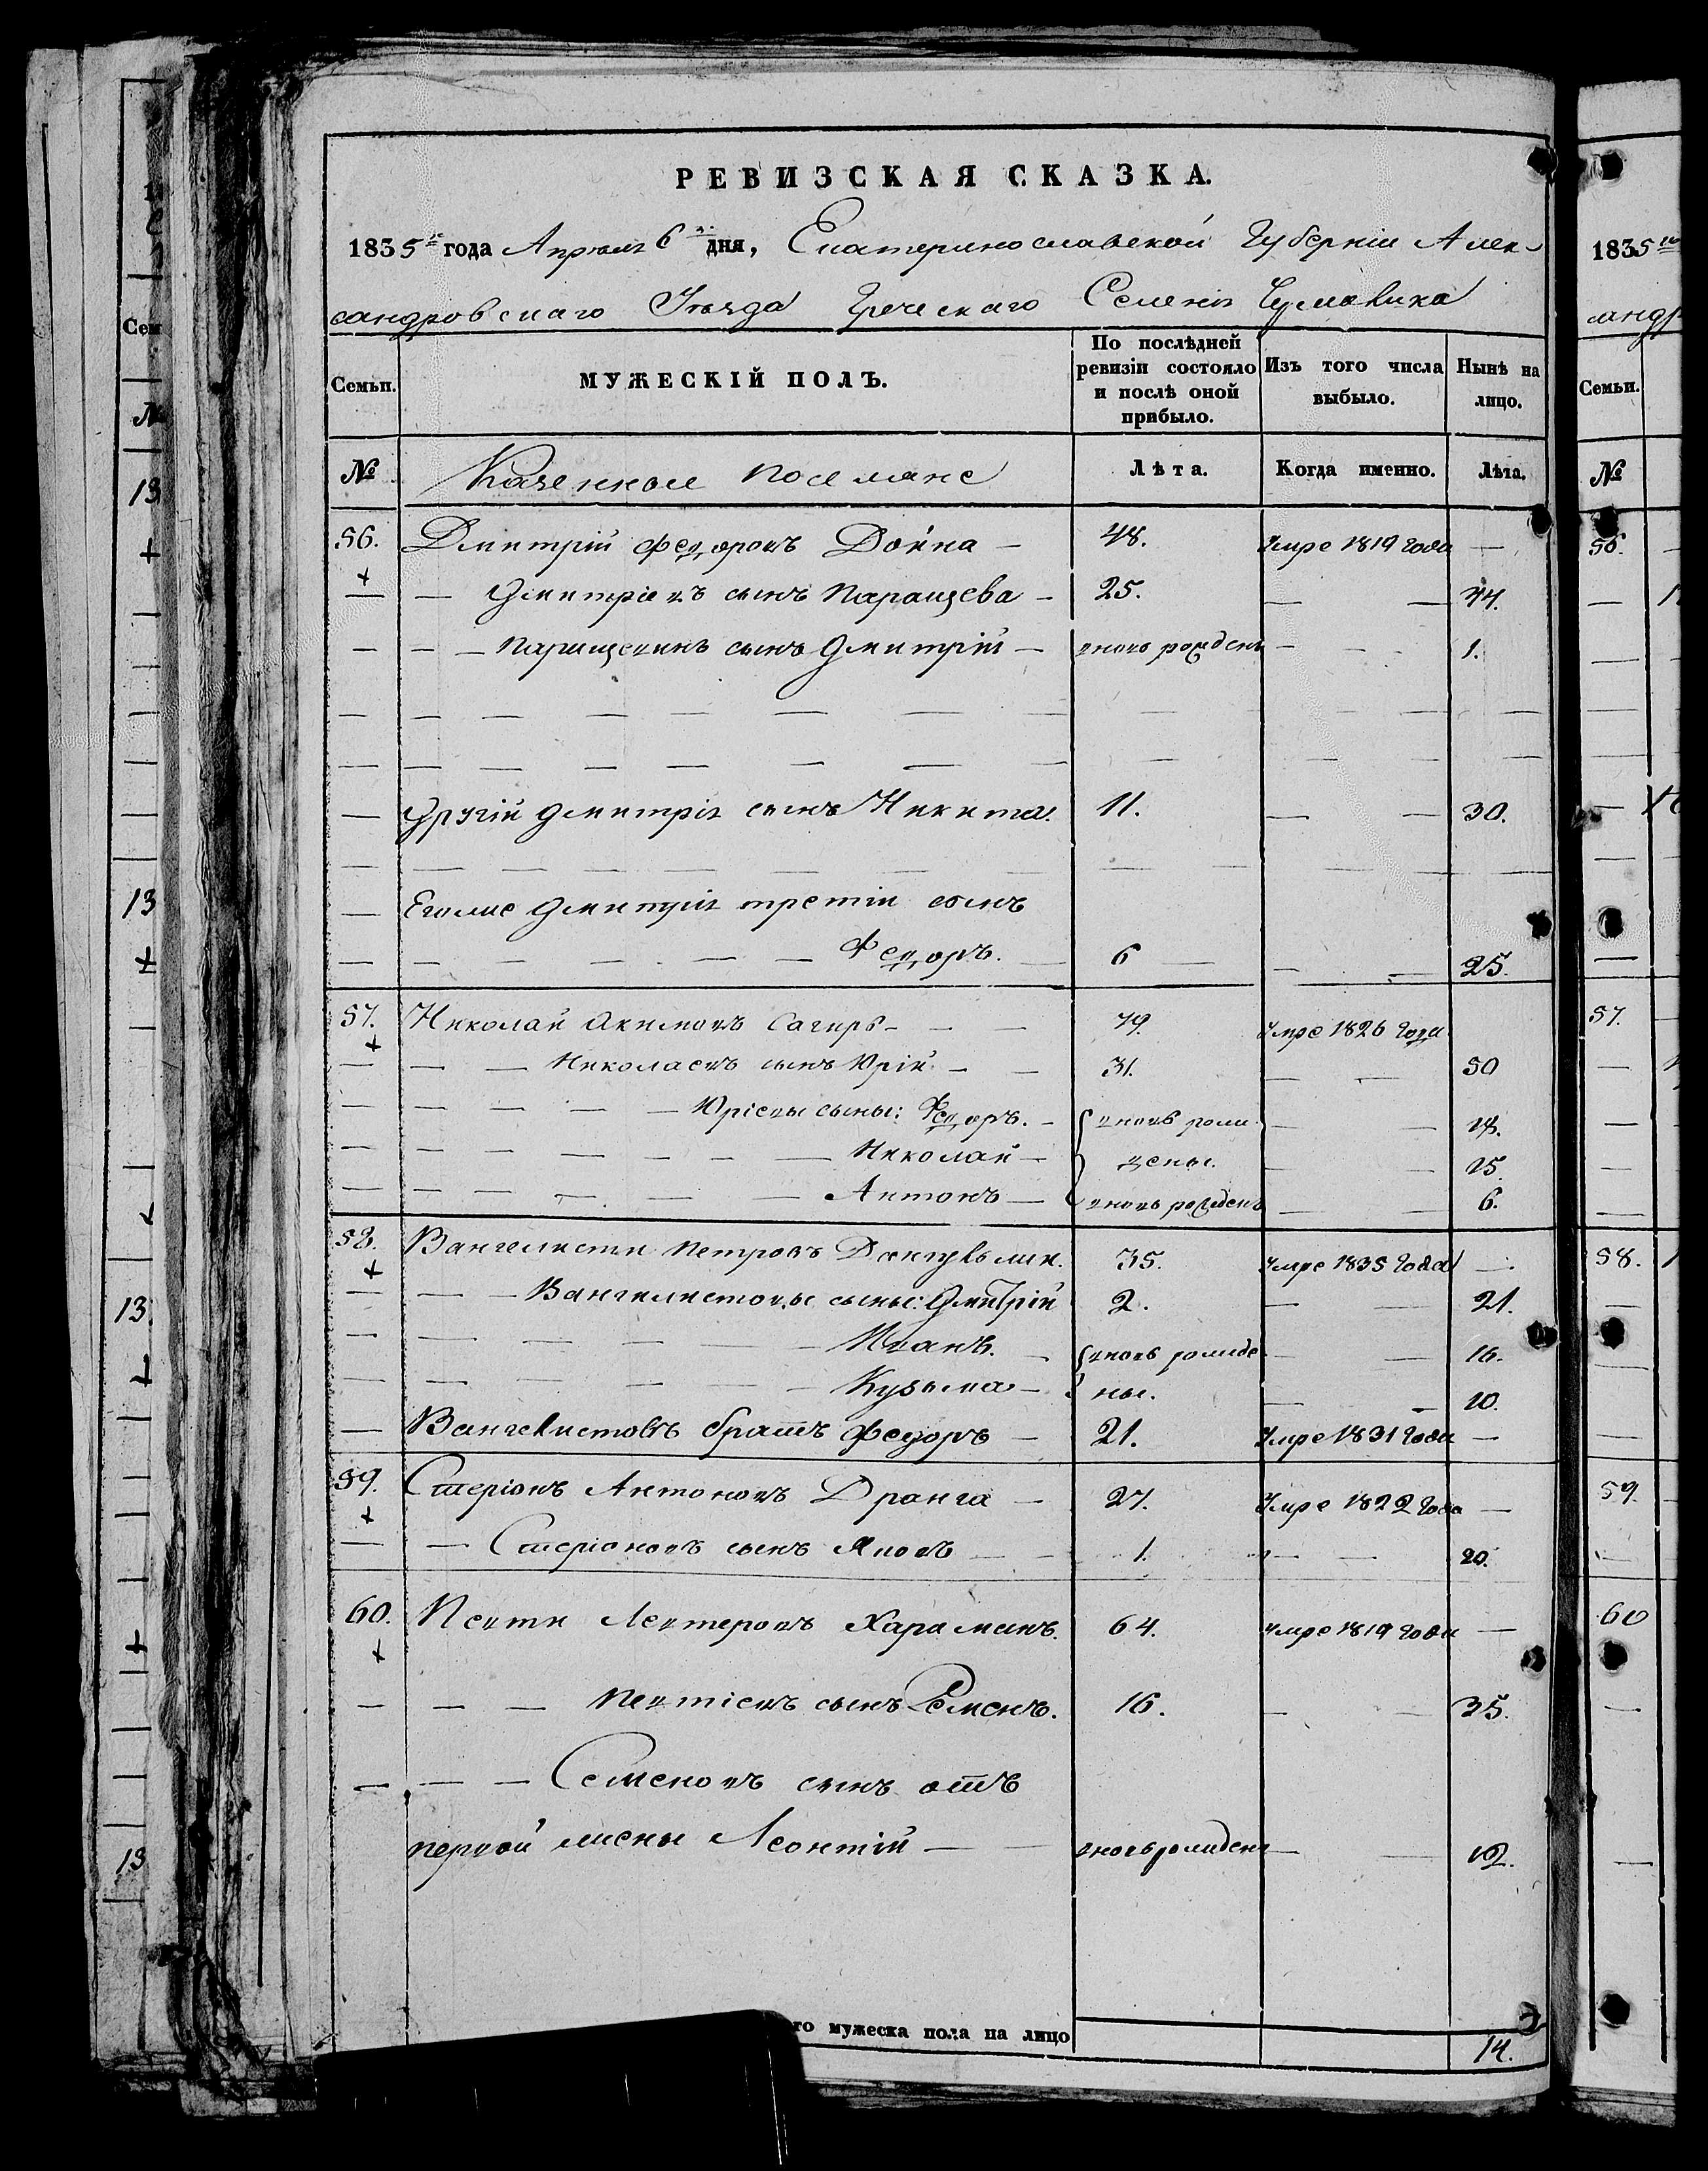 РЕВИЗСКАЯ СКАЗКА.
1835го года Апреля 6го дня, Екатеринославской Губерніи Алек-
сандровскаго Уѣзда Греческаго Селенія Чермалика
Семьи. МУЖЕСКІЙ ПОЛЪ. По послѣдней ревизіи состояло и послѣ оной прибыло. Изъ того числа выбыло. Нынѣ на лицо.
№ Казенные поселяне Лѣта. Когда именно. Лѣта.
56. Дмитрій Федоровъ Дойна — 48. Умре 1819 года —
— — Дмитріевъ сынъ Паращева — 25. — — 44.
— — — Паращевинъ сынъ Дмитрій — вновь рожденъ — - 1.
— Другій Дмитрія сынъ Никита. 11. — — 30.
— Егоже Дмитрія третій сынъ
— — — — — — — Федоръ. — 6 — — — 25.
57. Николай Акимовъ Сагиръ - — — 79. Умре 1826 года
— — — Николаевъ сынъ Юрій — — 31. — — 50
— — — — — — Юріевы сыны: Федоръ. — вновь рож- — — 18.
— — — — — — — — Николай — дены. — — 15.
— — — — — — — Антонъ — вновь рожденъ — — 6.
58. Вангелисти Петровъ 35. Умре 1835 года —
— — — Вангелистовы сыны: Дмитрій 2. — — 21.
— — — — — — Иванъ. — вновь рожде- — — 16.
— — — — — — Кузьма — ны. — — 10.
— Вангелистовъ братъ Федоръ — 21. Умре 1831 года —
59. Стеріонъ Антоновъ Дранга — 27. Умре 1822 года —
— — Стеріоновъ сынъ Яковъ — — 1. — — 20.
60. Певти Левтеровъ Хараманъ. 64. Умре 1819 года —
— — — Певтіевъ сынъ Семенъ. 16. — — 35.
— — — Семеновъ сынъ отъ
первой жены Леонтій — — вновь рожденъ — — 12.
го мужеска пола на лицо 14.
1835го
сандр
Семьи.
№
56.
57.
58.
59.
60
Сем
№
13
13
13
13